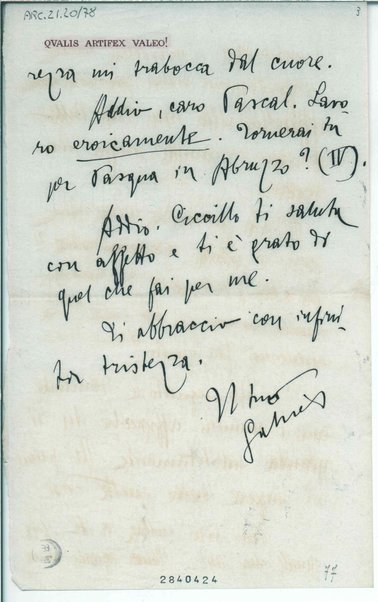 ARC.21.20/78
3
QVALIS ARTIFEX VALEO!
rezza mi trabocca dal cuore.
Addio, caro Pascal. Lavo
ro eroicamente. Tornerai tu
per Pasqua in Abruzzo? (IV).
Addio. Ciccillo ti saluta
con affetto e ti è grato di
quel che fai per me.
Ti abbraccio con infini-
ta tristezza.
Il tuo
Gabriel
2840424
77